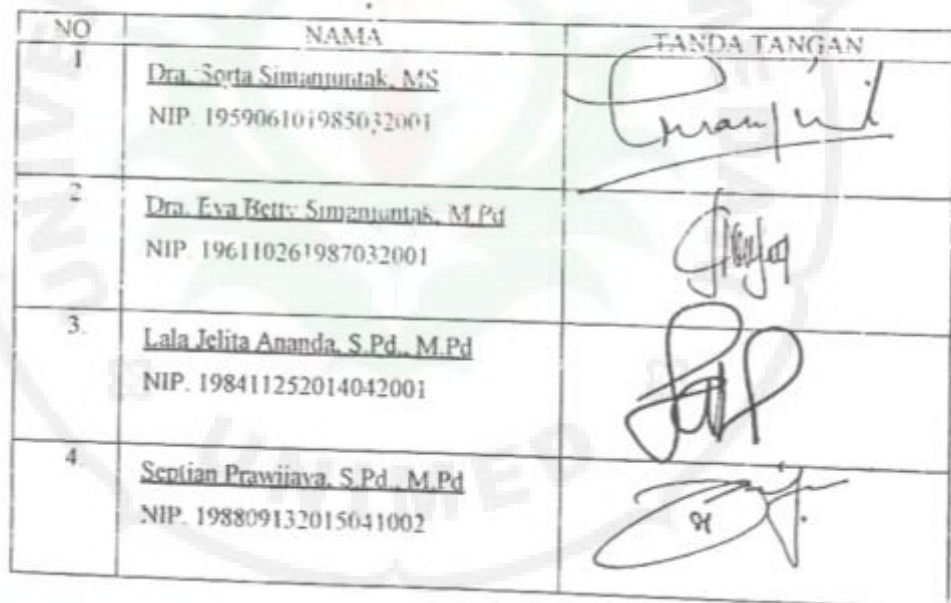 NO NAMA TANDA TANGAN
1 Dra. Sorta Simanjuntak, MS
NIP. 195906101985032001
2 Dra. Eva Betty Simanjuntak, M.Pd
NIP. 196110261987032001
3. Lala Jelita Ananda, S.Pd., M.Pd
NIP. 198411252014042001
4 Septian Prawijaya, S.Pd., M.Pd
NIP. 198809132015041002
UNIMED